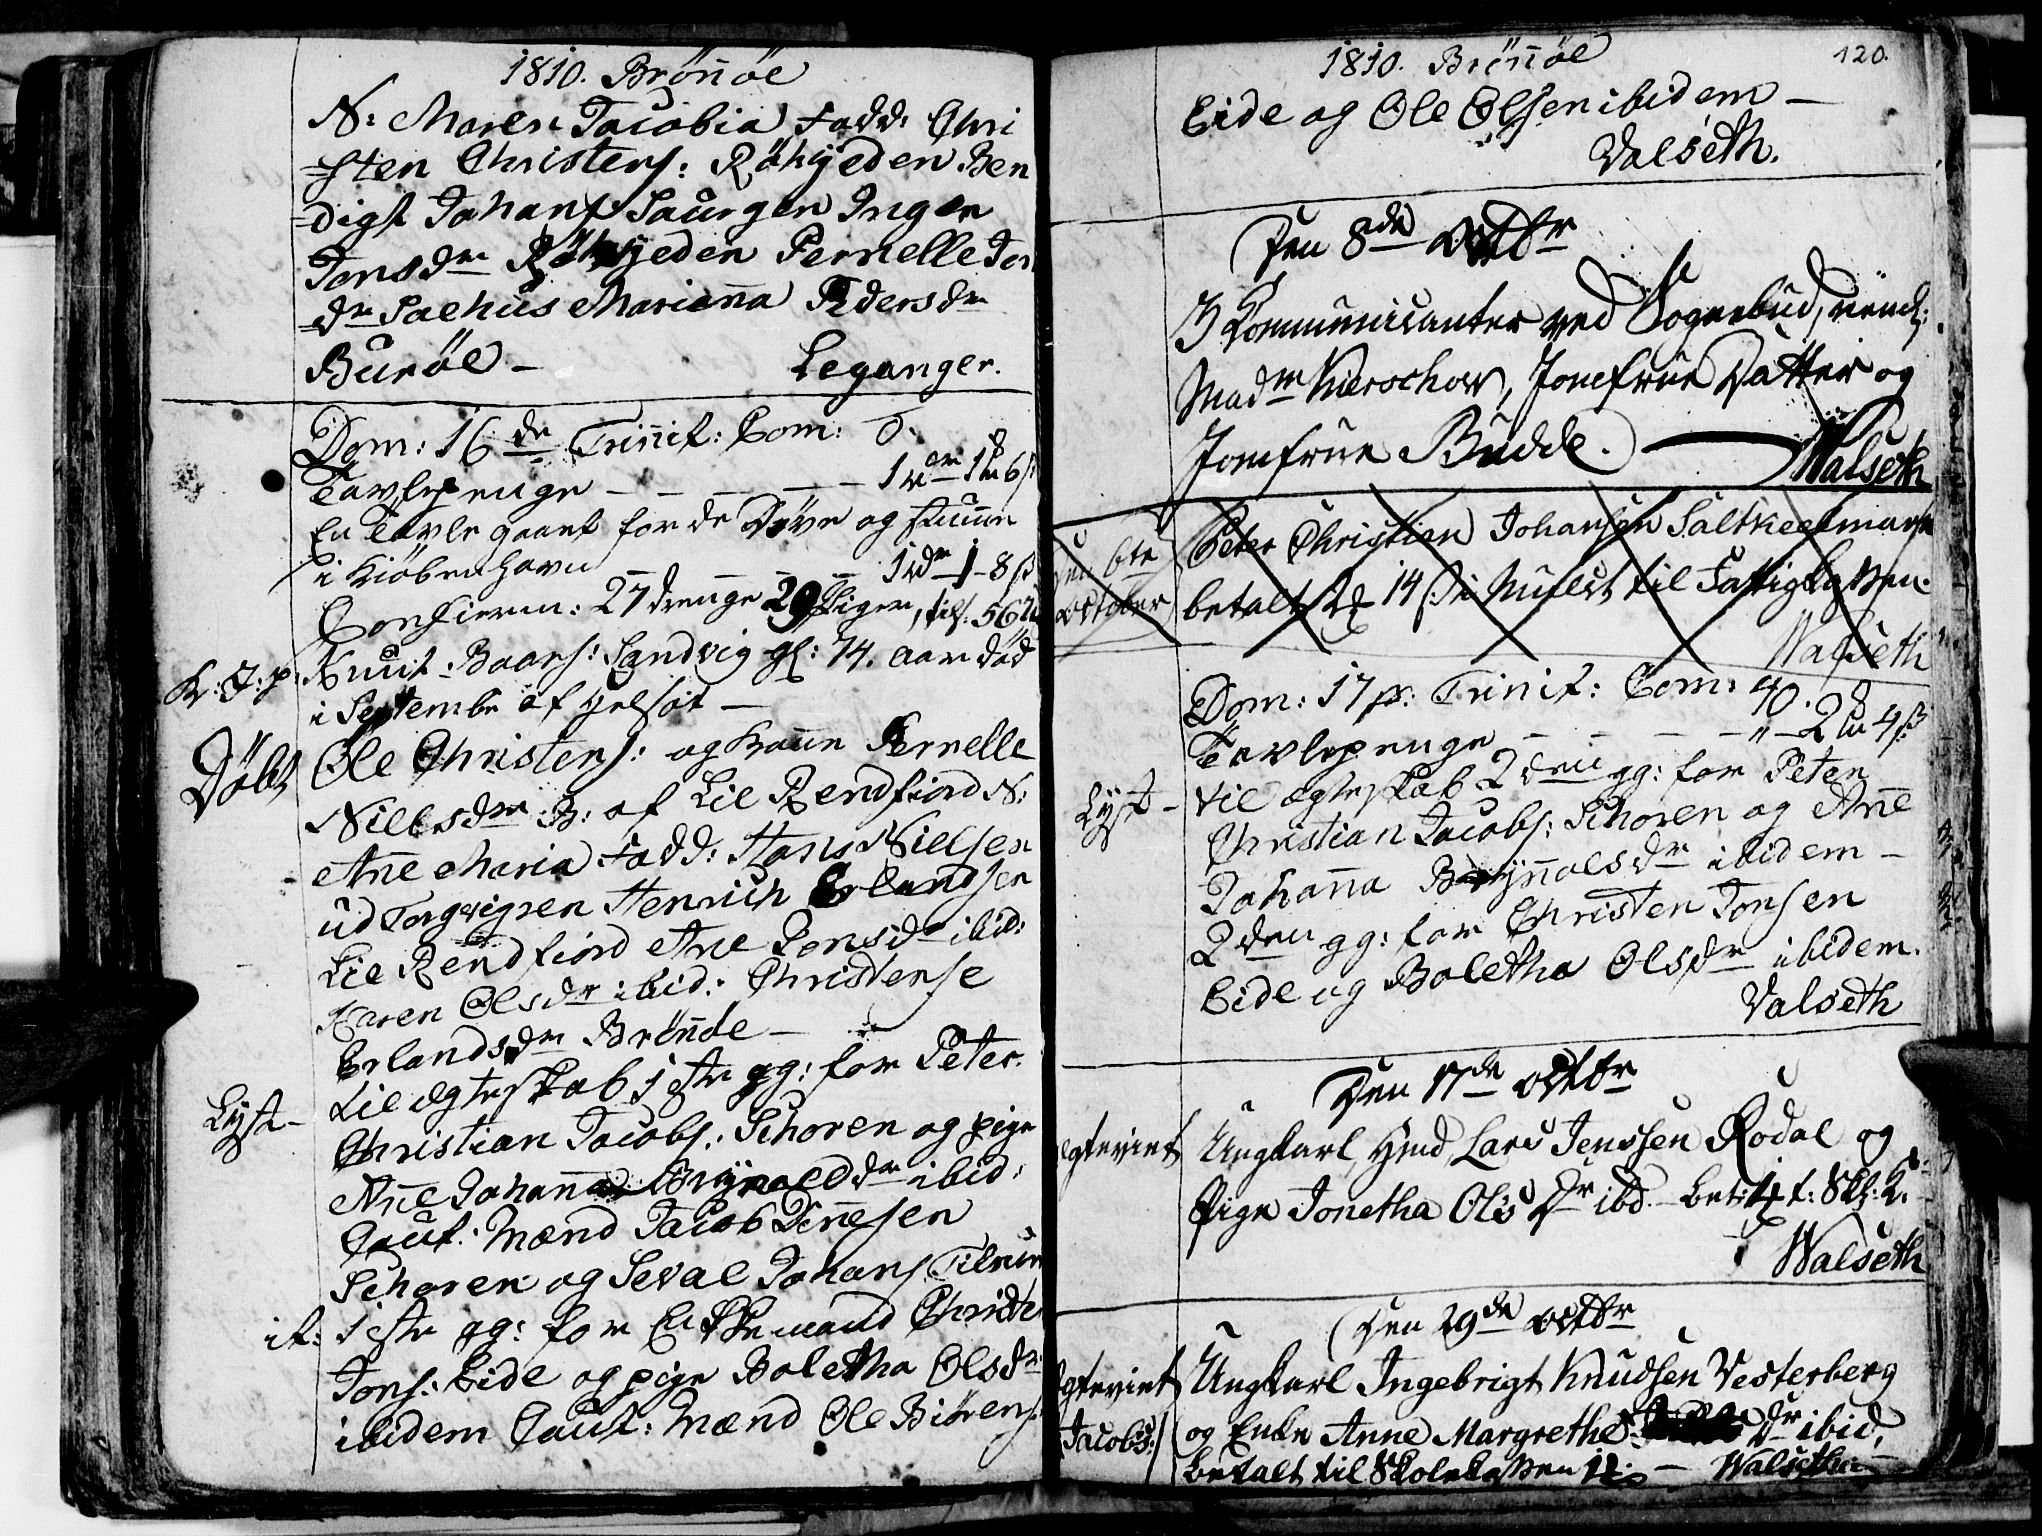 1810. Brönöe
N: Maren Jacobia Fadd: Chri
=sten Christens: Röhyeden Ben
=digt Johans Saurgen Inger
Jonsdr Röhyeden Pernelle Jon
=dr Saehus Marianna Pedersdr
Buröe – Leganger.
Dom: 16de Trinit: Com: 0.
Tavlepenge – – – – – 1 6 ß
En Tavle gaaet for de Døve og stumme
i Kiöbenhavn – – – 1 8 ß
Confierm: 27 drenge 29 Piger, tils. 56
K: J: p: Knut Baars: Sandvig gl: 74. aar død
i Septembr af
Døbt Ole Christens: og Kone Pernelle
Nillsdr B: af Lil Rendfiord N:
Ane Maria Fadd: Hans Nielsen
ud Torgvigen Henrich Erlandsen
Lil Rendfiord Ane Jonsdr ibid:
Karen Olsdr ibid: Christense
Erlandsdr Brönöe –
Lyst – til ægteskab 1ste gg: for Peter
Christian Jacobs: Schoren og pige
Ane Johanna Brynoldsdr ibid:
Caut: Mænd Jacob Tönesen
Schoren og Seval Johans Tilrum
it: 1ste gg: for Enkkemand Christen
Jons: Eide og pige Boletha Olsdr
ibidem Caut: Mænd Ole Biörens:
1810. Brönöe 120.
Eide og Ole Olsen ibidem –
Valseth.
Den 8de Octbr
3 Kommunicanter ved Sognebud, nemlig:
Madm Kierschow, Jomfrue Datter og
Jomfrue Budde. Walseth
Den 6te October Peter Christian Johansen Saltkeelmarsk
betalt 14 ß i Mulct til Fattigkassen.
Walseth
Dom: 17 p: Trinit: Com: 40.
Tavlepenge – – – – – " – 2 4 ß
Lyst – til ægteskab 2den gg: for Peter
Christian Jacobs: Schoren og Ane
Johanna Brynolsdr ibidem –
2den gg: for Christen Jonsen
Eide og Boletha Olsdr ibidem.
Valseth
Den 17de Octbr
Ægteviet Ungkarl Lars Jenssen Rodal og
Pige Jonetha Ols Dr ibd. – bet: t: Skl: K.
Walseth
Den 29de Octbr
Ægteviet Ungkarl Ingebrigt Knudsen Vesterberg
Jacobs: og Enke Anne Margrethe Dr ibid.
betalt til Skolekassen – Walseth